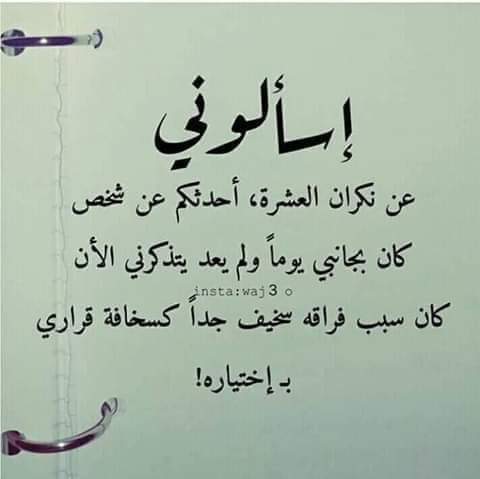 إسألوني
عن نكران العشرة، أحدثكم عن شخص
كان بجانبي يوماً ولم يعد يتذكرني الأن
insta:waj3 o
كان سبب فراقه سخيف جداً كسخافة قراري
بـ إختياره!